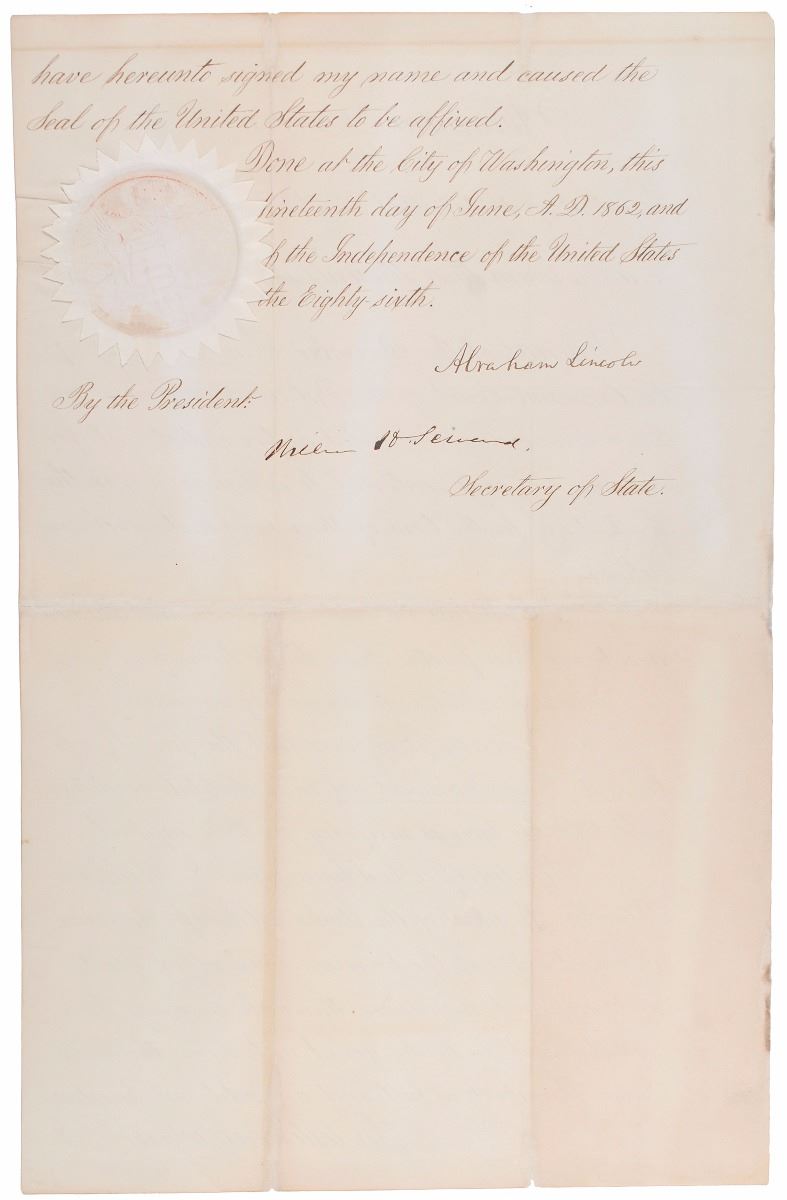 have hereunto signed my name and caused the
Seal of the United States to be affixed.
Done at the City of Washington, this
Nineteenth day of June, A. D. 1862, and
of the Independence of the United States
the Eighty-sixth.
Abraham Lincoln
By the President:
William H. Seward.
Secretary of State.